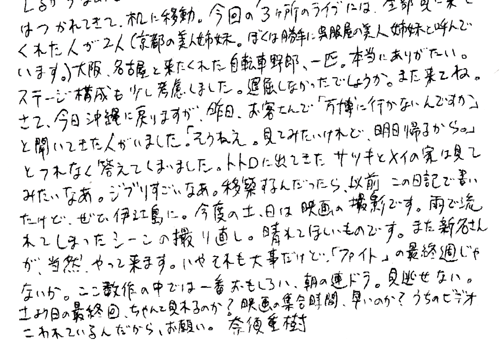 はつかれてきて、机に移動。今回の「3ヶ所のライブには、全部見に来て
くれた人が2人(京都の美人姉妹。ぼくは勝手に呉服屋の美人姉妹と呼んで
います。)大阪、名古屋と来たくれた自転車野郎、一匹。本当にありがたい。
ステージ構成も少し考慮しました。退屈しなかったでしょうか。また来てね。
さて、今日沖縄に戻りますが、昨日、お客さんで「万博に行かないんですか」
と聞いてきた人がいました。「そうねえ。見てみたいけれど、明日帰るから。」
とつれなく答えてしまいました。トトロに出てきたサツキとメイの家は見て
みたいなあ。ジブリすごいなあ。移築するんだったら、以前この日記で書い
たけど、ぜひ伊江島に。今度の土、日は映画の撮影です。雨で流
れてしまったシーンの撮り直し。晴れてほしいものです。また新名さん
が、当然、やって来ます。いやそれも大事だけど、「ファイト」の最終週じゃ
ないか。ここ数作の中では一番おもしろい、朝の連ドラ。見逃せない。
土よう日の最終回、ちゃんと見れるのか?映画の集合時間、早いのか?うちのビデオ
こわれているんだから、お願い。 奈須重樹